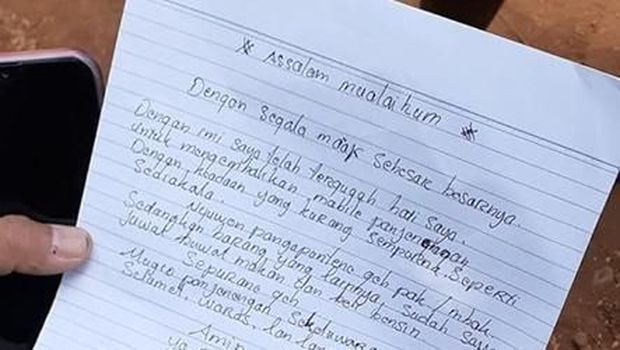 * Assalam mualaikum *
Dengan segala maaf sebesar besarnya.
Dengan ini saya telah tergugah hati saya.
untuk mengembalikan mobile panjenengan
Dengan keadaan yang kurang sempurna. Seperti
Sediakala.
Nyuwon pangapuntene geh pak / mbak.
Sedangkan barang yang lainnya sudah saya
juwal buwat makan dan beli bensin
Sepurane geh
Mugio panjenengan Sekeluwar
Selamet, waras, lan
Amin
ya